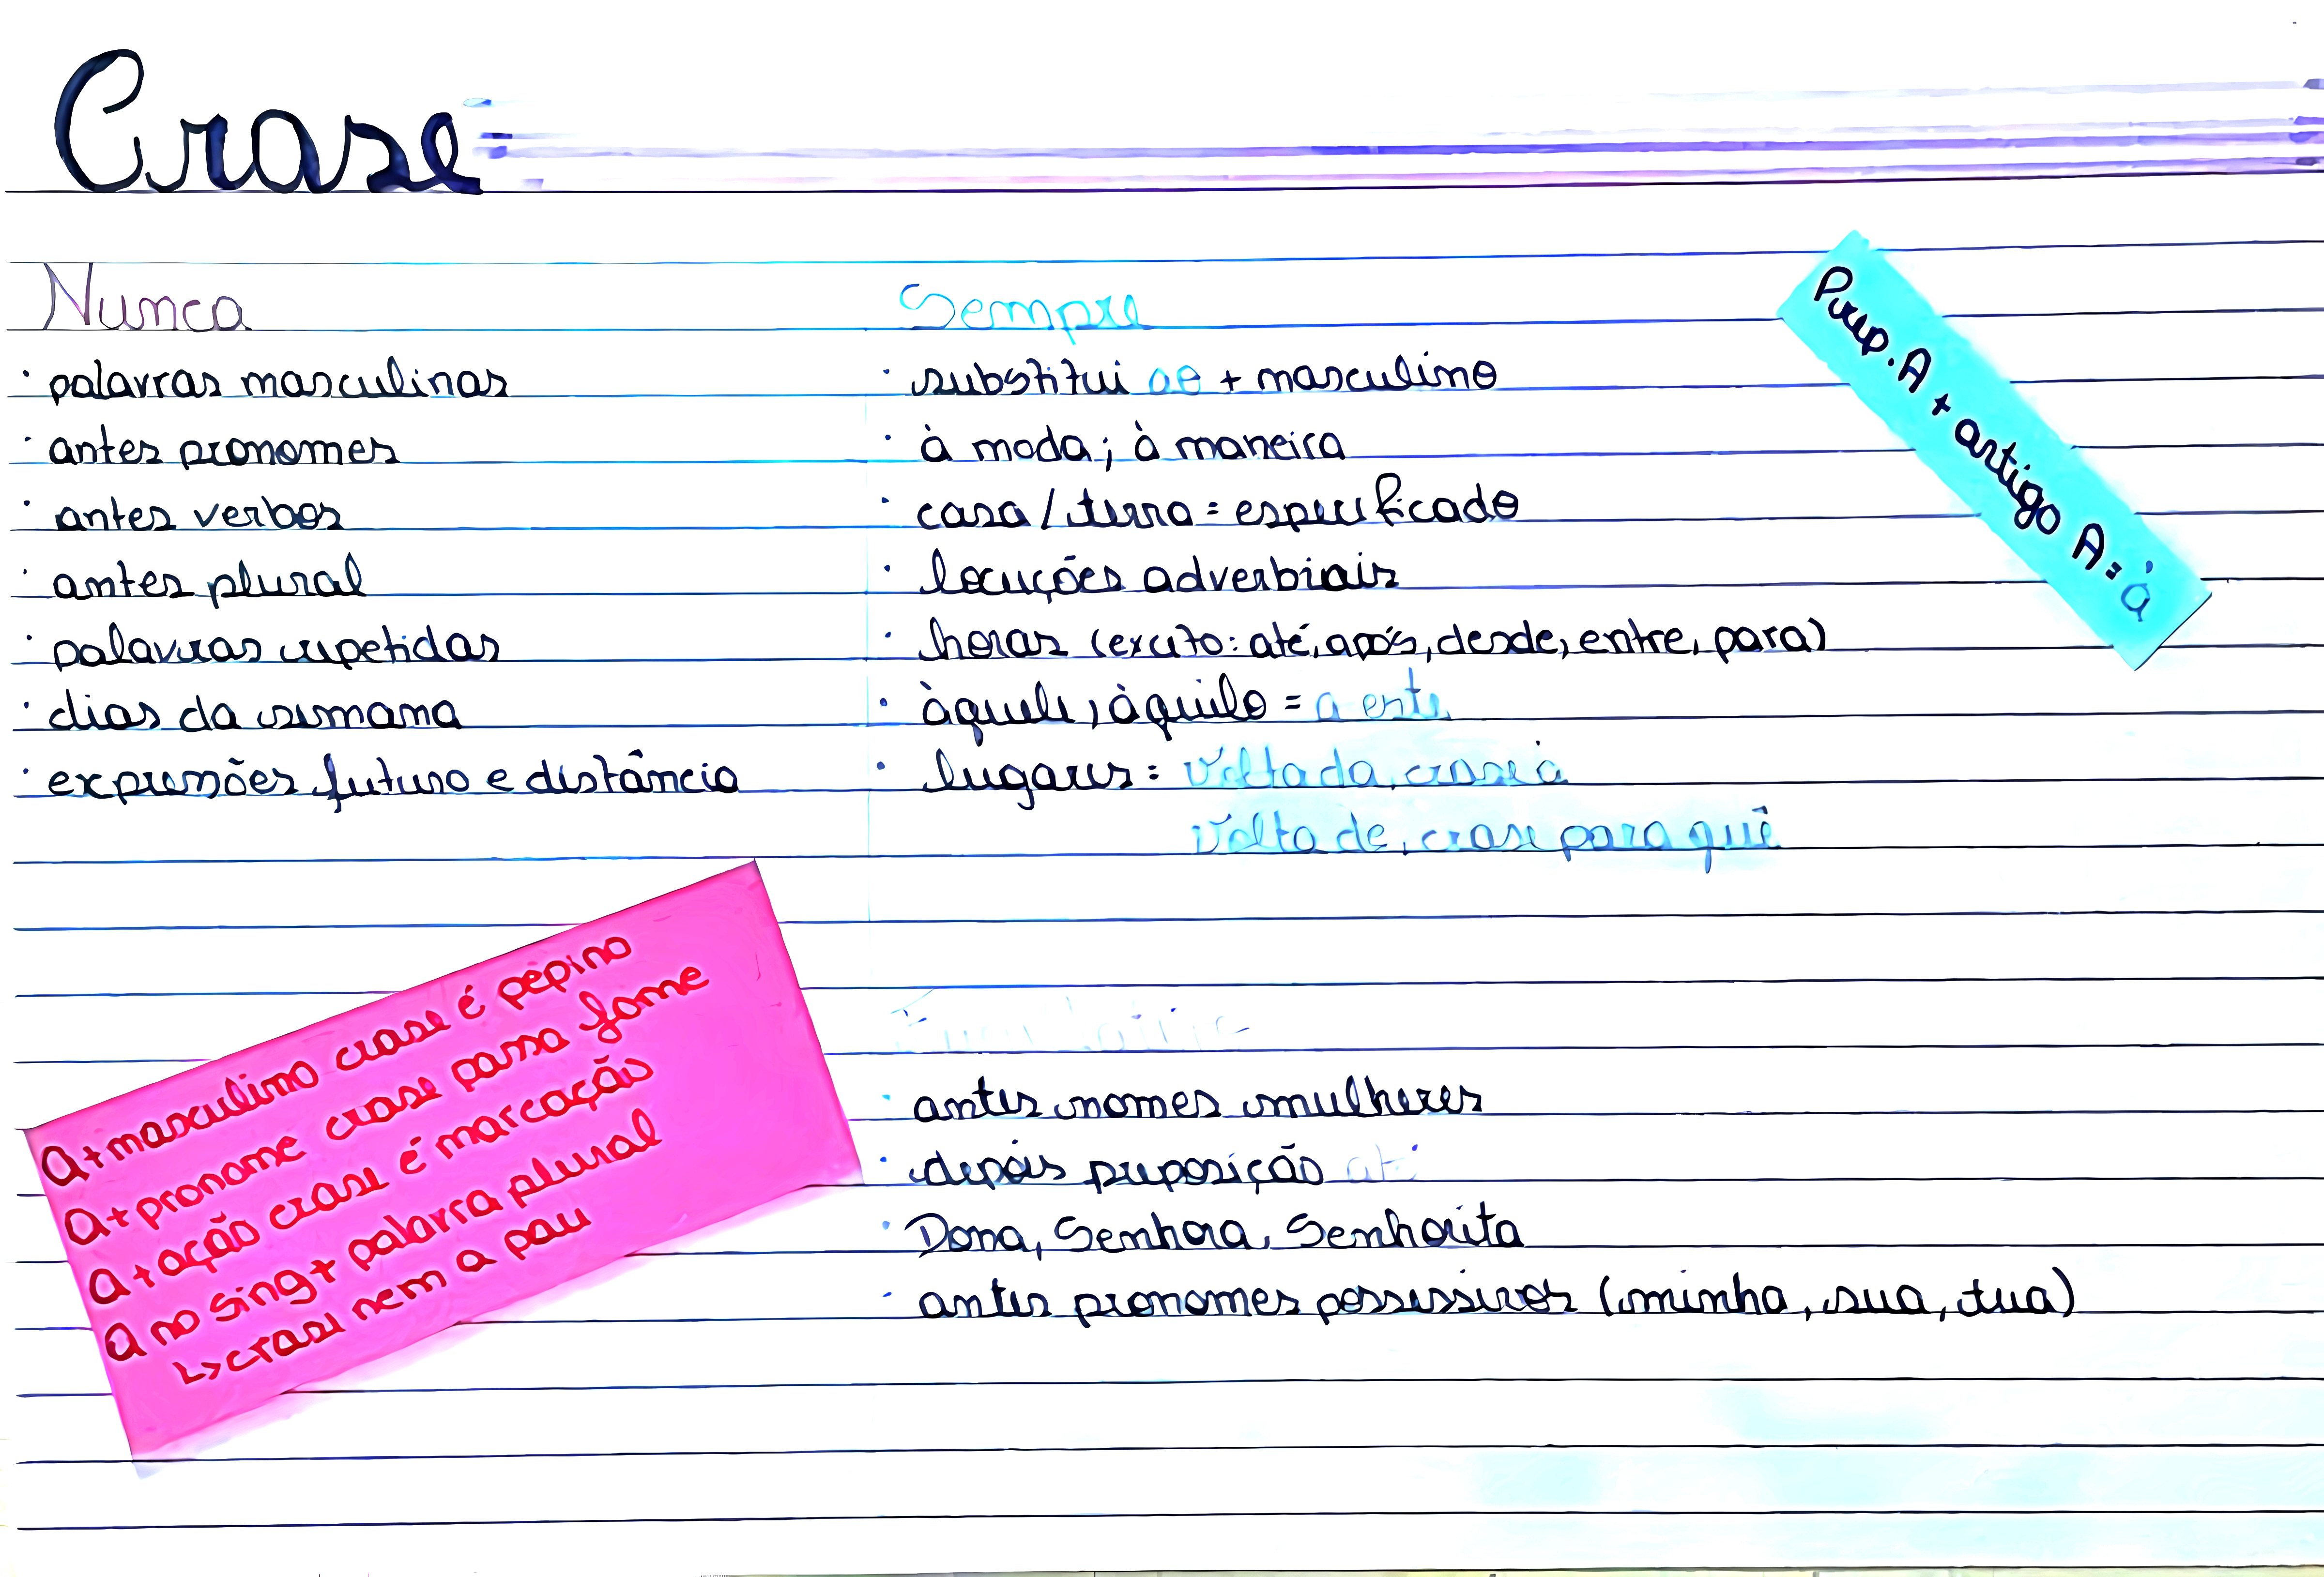 Crase
Prep. A + artigo A = à
Nunca
· palavras masculinas
· antes pronomes
· antes verbos
· antes plural
· palavras repetidas
· dias da semana
· expressões futuro e distância
Sempre
· substitui ao + masculino
· à moda; à maneira
· casa / terra = especificado
· locuções adverbiais
· horas (exceto: até, após, desde, entre, para)
· àquele, àquilo = a este
· lugares: Volta da, crase à
Volta de, crase para quê
A + masculino crase é pepino
A + pronome crase passa fome
A + ação crase é marcação
A no sing + palavra plural
↳ crase nem a pau
· antes nomes mulheres
· depois preposição até
· Dona, Senhora, Senhorita
· antes pronomes possessivos (minha, sua, tua)